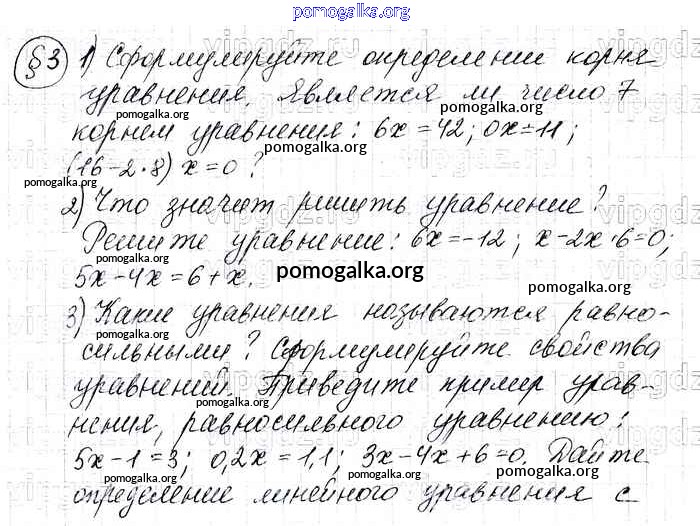 pomogalka.org
§3 1) Сформулируйте определение корня
уравнения. Является ли число 7
pomogalka.org
pomogalka.org
корнем уравнения: 6x = 42; 0x = 11;
pomogalka.org
(16 - 2·8) x = 0?
pomogalka.org
2) Что значит решить уравнение?
pomogalka.org
Решите уравнение: 6x = -12; x - 2x·6 = 0;
5x - 4x = 6 + x.
pomogalka.org
3) Какие уравнения называются равно-
pomogalka.org
сильными? Сформулируйте свойства
pomogalka.org
уравнений. Приведите пример урав-
pomogalka.org
нения, равносильного уравнению:
pomogalka.org
5x - 1 = 3; 0,2x = 1,1; 3x - 4x + 6 = 0. Дайте
pomogalka.org
pomogalka.org
определение линейного уравнения с